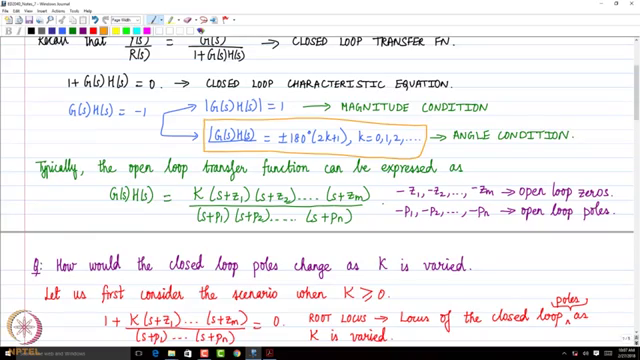 ED2040_Notes_7 - Windows Journal
File Edit View Insert Actions Tools Help
Page Width
Recall that Y(s)/R(s) = G(s)/1+G(s)H(s) → CLOSED LOOP TRANSFER FN.
1+G(s)H(s) = 0. → CLOSED LOOP CHARACTERISTIC EQUATION.
G(s)H(s) = -1
|G(s)H(s)| = 1 → MAGNITUDE CONDITION
∠G(s)H(s) = ±180°(2k+1), k=0,1,2,.... → ANGLE CONDITION.
Typically, the open loop transfer function can be expressed as
G(s)H(s) = K(s+z1)(s+z2)....(s+zm)/(s+p1)(s+p2).....(s+pn).
-z1, -z2, ..., -zm → open loop zeros.
-p1, -p2, ..., -pn → open loop poles.
Q: How would the closed loop poles change as K is varied.
Let us first consider the scenario when K ≥ 0.
1 + K(s+z1)...(s+zm)/(s+p1)...(s+pn) = 0.
ROOT LOCUS → Locus of the closed loop poles as
K is varied.
NPTEL
10:07 AM